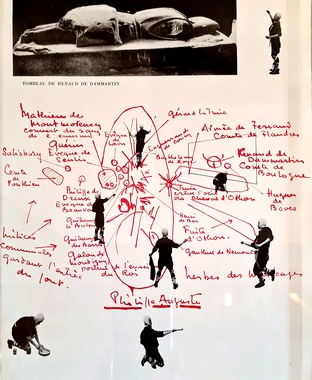 TOMBEAU DE RENAUD DE DAMMARTIN
Mathieu de
Montmorency
couvert du sang
de l'ennemi
Guérin
Evêque de
Senlis
Evêque
Laon
Gérard la Truie
Armée de Ferrand
Comte de Flandres
Renaud de
Dammartin
Comte de
Boulogne
Salisbury
Comte
Ponthieu
Philippe de
Dreux
Evêque de
Beauvais
Guillaume
le Breton
Guillaume
des Barres
Galon de
Montigny
porteur de l'enseigne
du Roi
Hugues
de
Boves
Henri
de Bar
Fuite
d'Othon
Gauthier de Nemours
milices
communales
gardant l'entrée
du pont
herbes des
Philippe Auguste